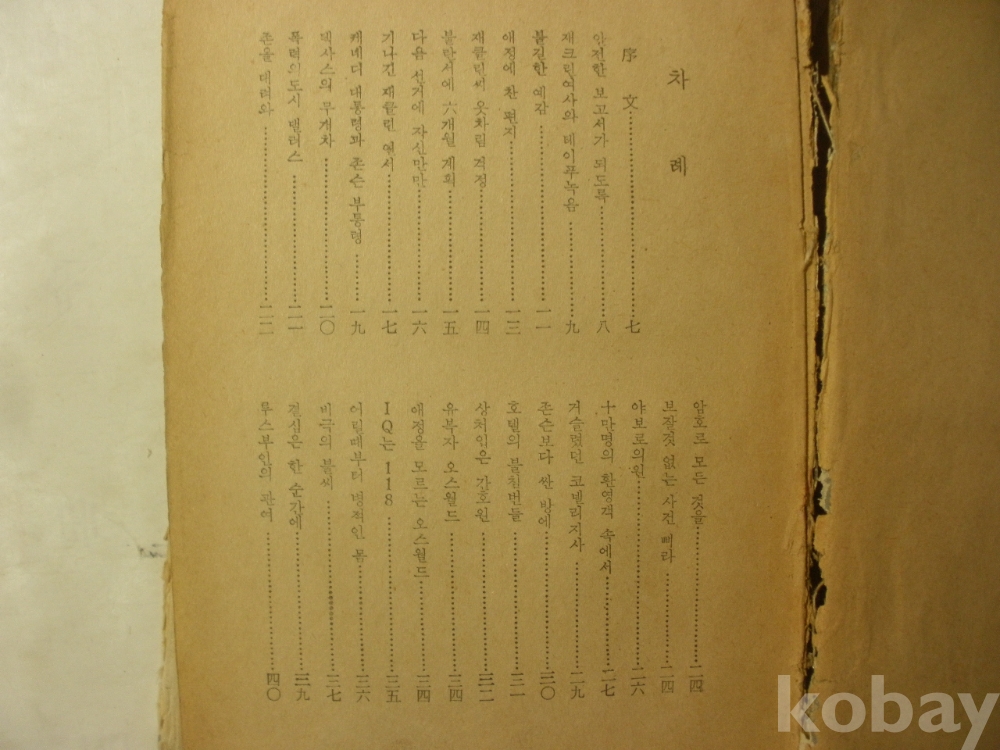 차 례
序 文 七
완전한 보고서가 되도록 八
재크린여사와 테이푸녹음 九
불길한 예감 一一
애정에 찬 편지 一三
재클린씨 옷차림 걱정 一四
불란서에 六개월 계획 一五
다음 선거에 자신만만 一六
기나긴 재클린 엽서 一七
케네디 대통령과 존슨 부통령 一九
텍사스의 무개차 二〇
폭력의도시 댈러스 二一
존을 데려와 二二
암호로 모든 것을 二四
보잘것 없는 사건 삐라 二四
야보로의원 二六
十만명의 환영객 속에서 二七
거슬렸던 코넬리지사 二九
존슨보다 싼 방에 三〇
호텔의 불침번들 三一
상처입은 간호원 三二
유부자 오스월드 三四
애정을 모르는 오스월드 三四
IQ는 118 三五
어릴때부터 병적인 몸 三六
비극의 불씨 三七
결심은 한 순간에 三九
루스부인의 관여 四〇
kobay